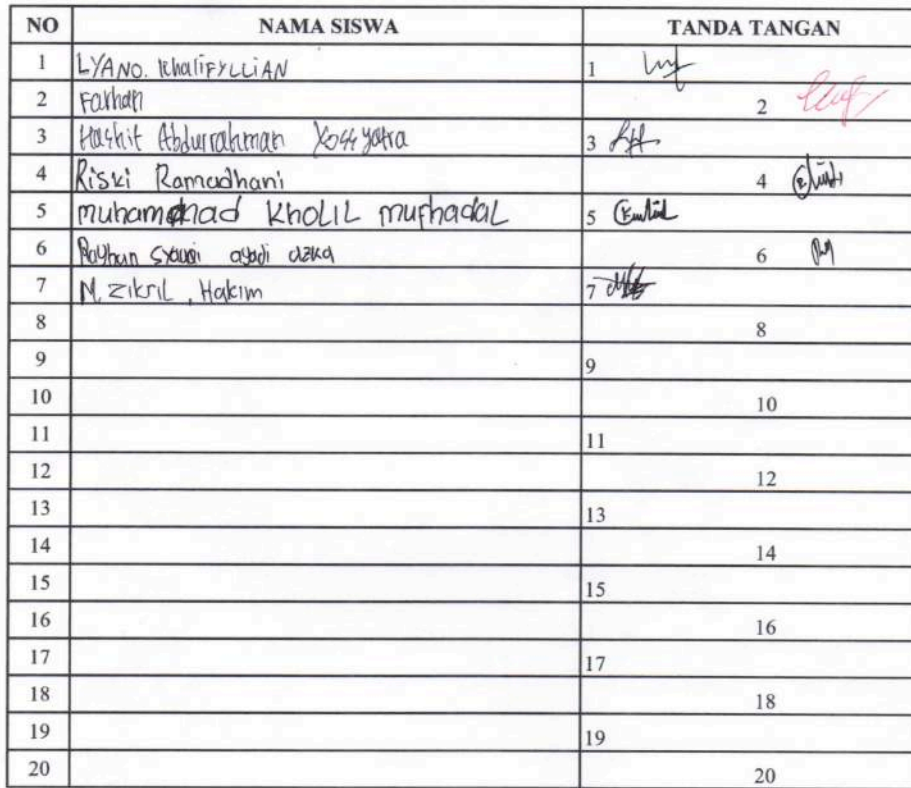 NO NAMA SISWA TANDA TANGAN
1 LYANO. KhaliFYLLiAN 1
2 Farhan 2
3 Abdurrahman 3
4 Riski Ramadhani 4
5 muhammad KHOLIL mufhadal 5
6 Rayhan syauqi ayadi azka 6
7 M. zikril, Hakim 7
8 8
9 9
10 10
11 11
12 12
13 13
14 14
15 15
16 16
17 17
18 18
19 19
20 20